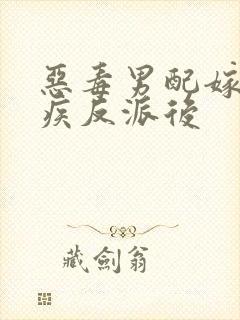 惡毒男配嫁
疾反派後
藏劍翁